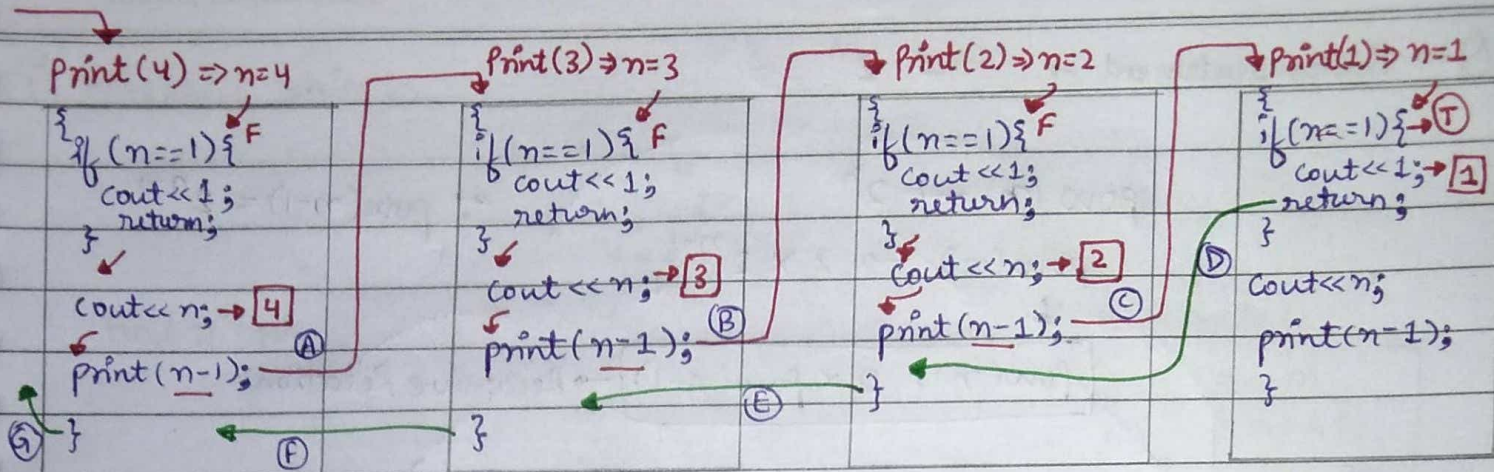 print(4) => n=4
{
if (n==1){ F
cout<<1;
return;
}
cout<<n; → 4
A
print(n-1);
}
G
F
print(3) => n=3
{
if (n==1){ F
cout<<1;
return;
}
cout<<n; → 3
B
print(n-1);
}
E
print(2) => n=2
{
if (n==1){ F
cout<<1;
return;
}
cout<<n; → 2
C
print(n-1);
}
D
print(1) => n=1
{
if (n==1){ → T
cout<<1; → 1
return;
}
cout<<n;
print(n-1);
}